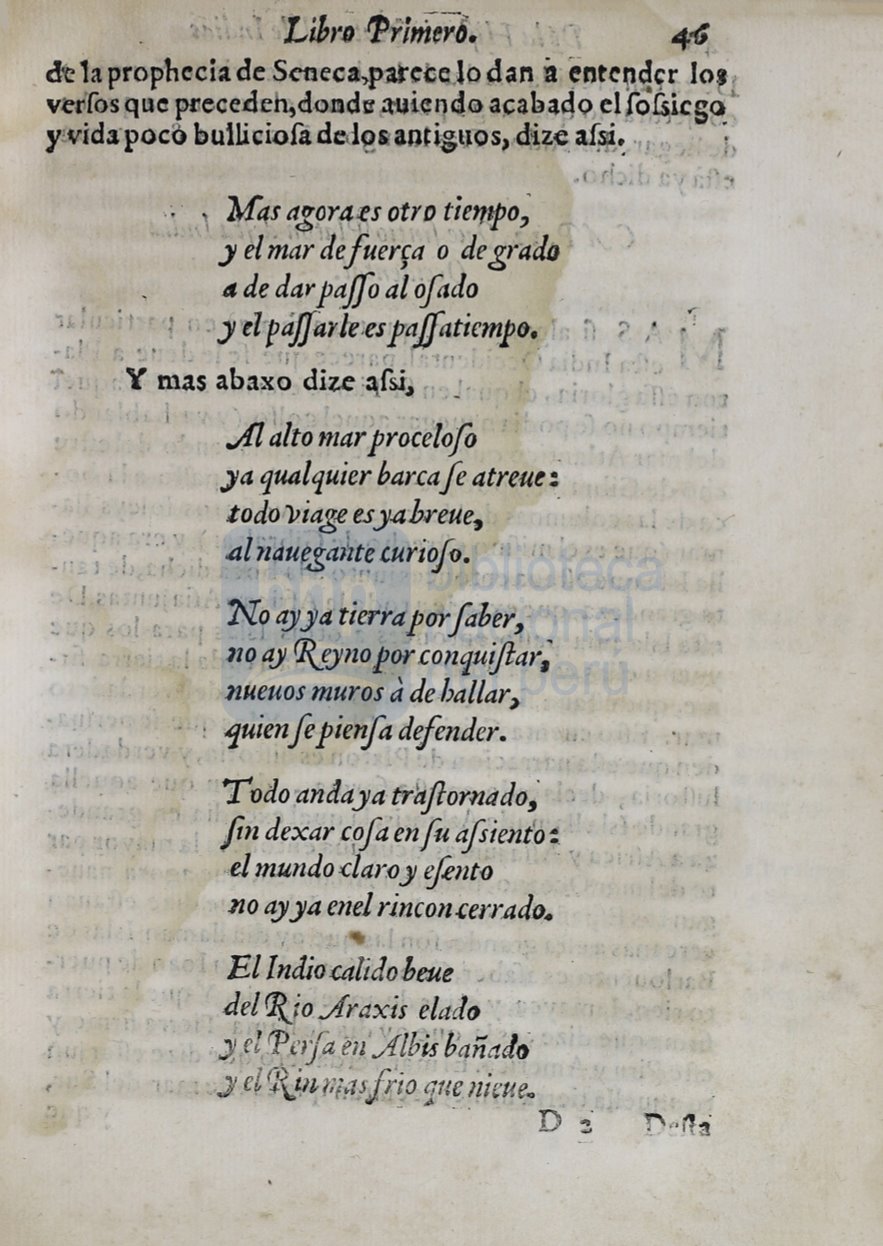 Libro Primero. 46
de la prophecia de Seneca, parece lo dan a entender los
verſos que preceden, donde auiendo acabado el ſoſsiego
y vida poco bullicioſa de los antiguos, dize aſsi.
Mas agora es otro tiempo,
y el mar de fuerça o de grado
a de dar paſſo al oſado
y el paſſarle es paſſatiempo.
Y mas abaxo dize aſsi,
Al alto mar proceloſo
ya qualquier barca ſe atreue:
todo viage es ya breue,
al nauegante curioſo.
No ay ya tierra por ſaber,
no ay Reyno por conquiſtar,
nueuos muros à de hallar,
quien ſe pienſa defender.
Todo anda ya traſtornado,
ſin dexar coſa en ſu aſsiento:
el mundo claro y eſento
no ay ya enel rincon cerrado.
El Indio calido beue
del Rio Araxis elado
y el Perſa en Albis bañado
y el Rin mas frio que nieue.
D 2 Deſta
biblioteca
nacional
perú